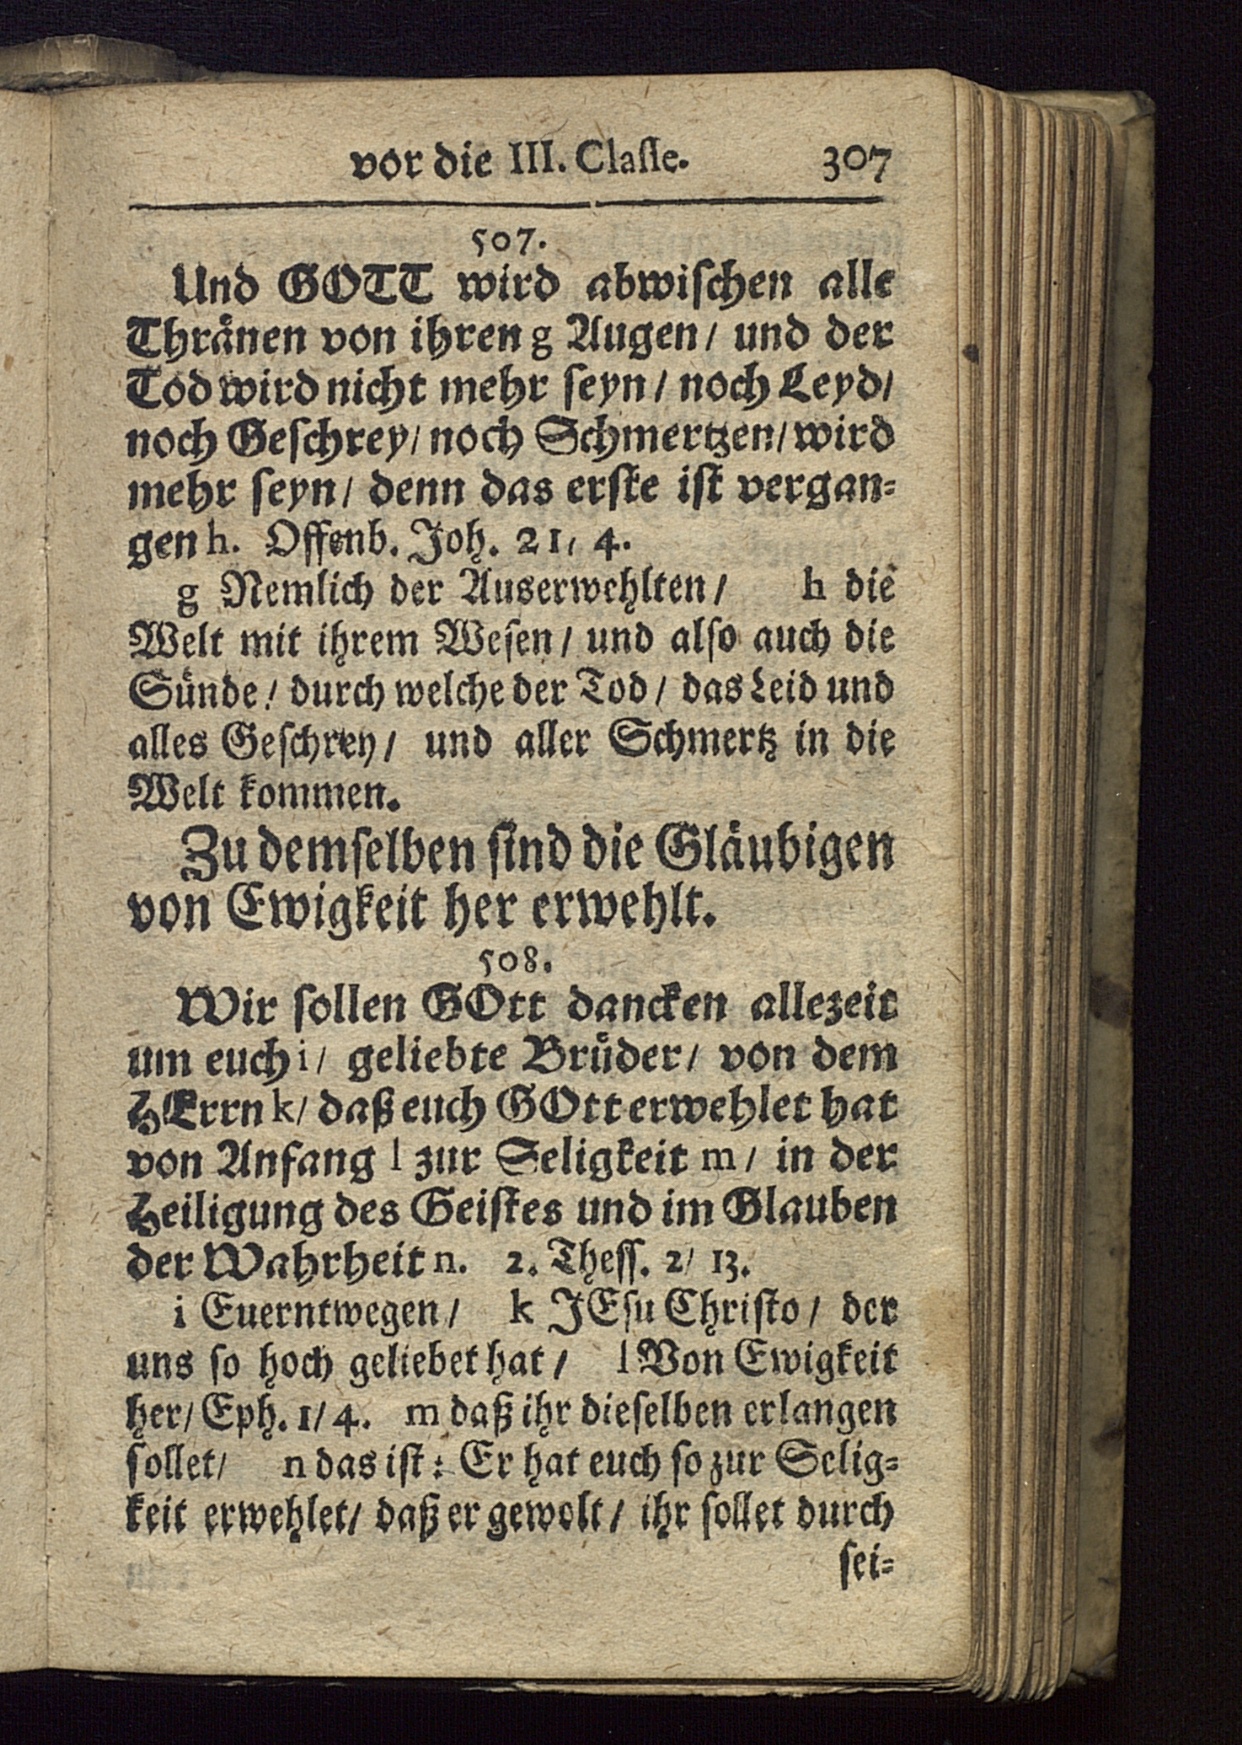 vor die III. Claſſe. 307
507.
Und GOTT wird abwiſchen alle
Thränen von ihren g Augen / und der
Tod wird nicht mehr ſeyn / noch Leyd /
noch Geſchrey / noch Schmertzen / wird
mehr ſeyn / denn das erſte iſt vergan⸗
gen h. Offenb. Joh. 21 / 4.
g Nemlich der Auserwehlten / h die
Welt mit ihrem Weſen / und alſo auch die
Sünde / durch welche der Tod / das Leid und
alles Geſchrey / und aller Schmertz in die
Welt kommen.
Zu demſelben ſind die Gläubigen
von Ewigkeit her erwehlt.
508.
Wir ſollen GOtt dancken allezeit
um euch i / geliebte Brüder / von dem
HErrn k / daß euch GOtt erwehlet hat
von Anfang l zur Seligkeit m / in der
Heiligung des Geiſtes und im Glauben
der Wahrheit n. 2. Theſſ. 2 / 13.
i Euerntwegen / k JEſu Chriſto / der
uns ſo hoch geliebet hat / l Von Ewigkeit
her / Eph. 1 / 4. m daß ihr dieſelben erlangen
ſollet / n das iſt : Er hat euch ſo zur Selig⸗
keit erwehlet / daß er gewolt / ihr ſollet durch
ſei⸗